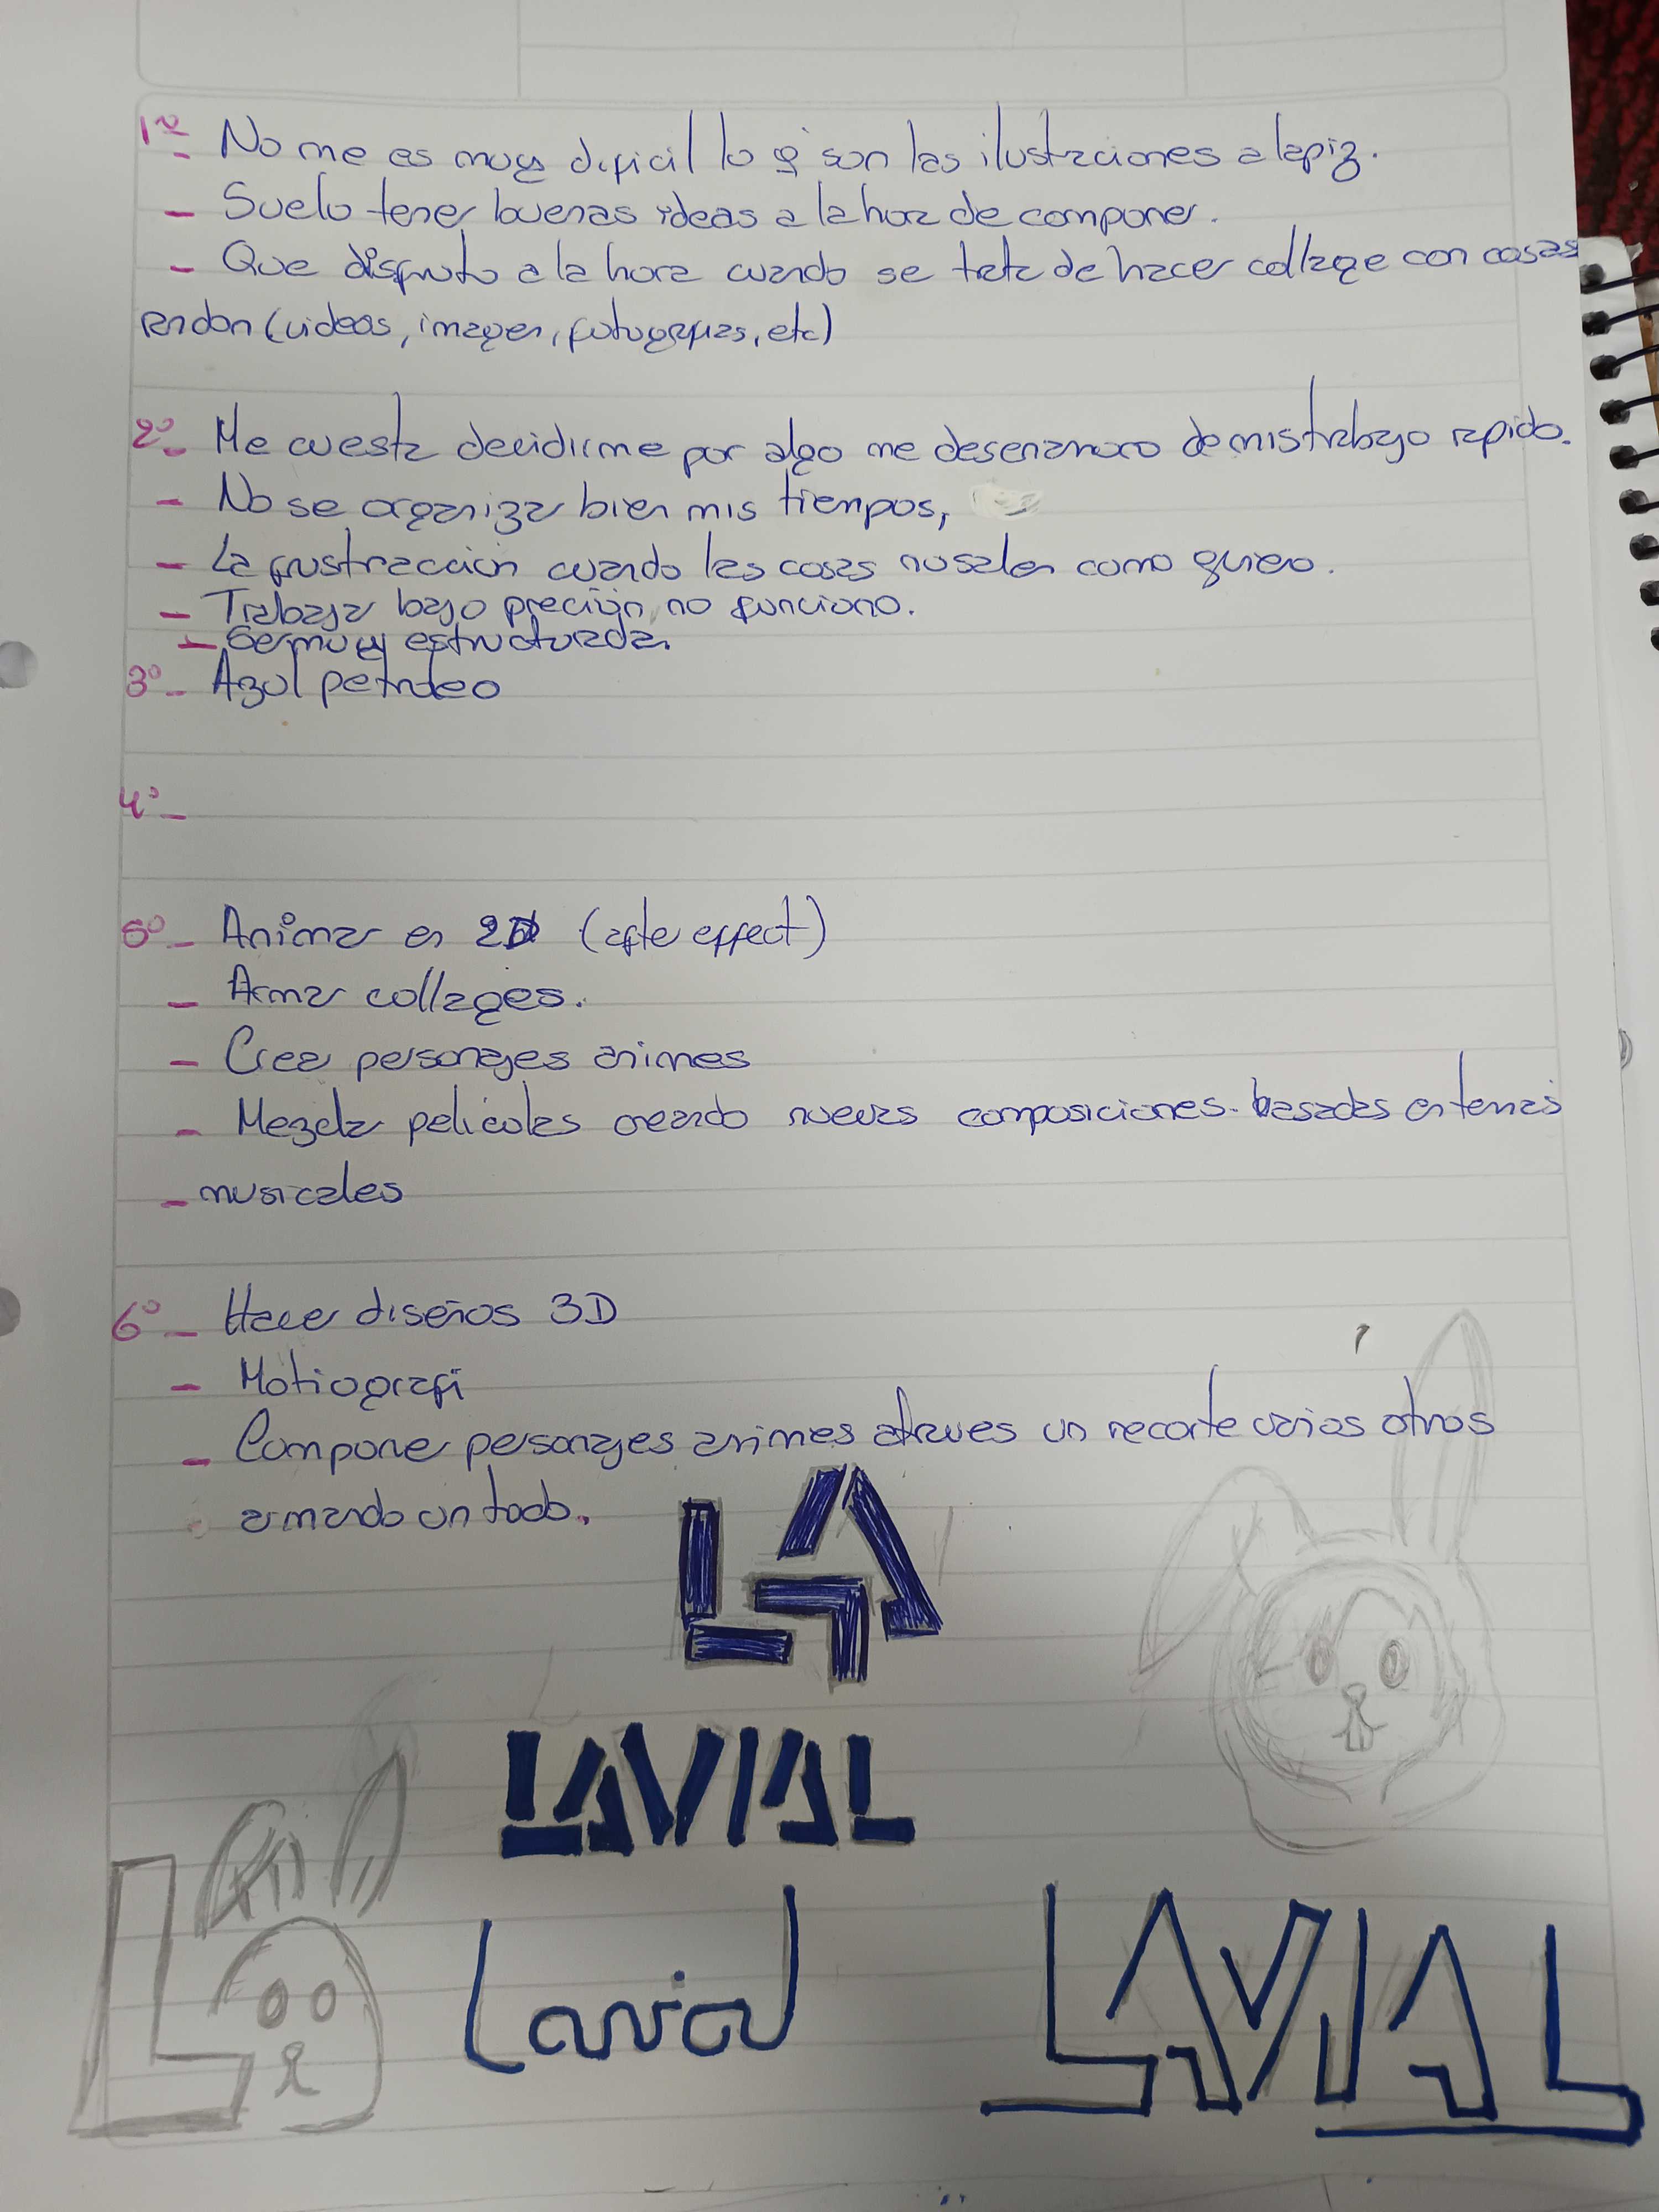 1º- No me es muy dificil lo q son las ilustraciones a lapiz.
- Suelo tener buenas ideas a la hora de componer.
- Que disfruto a la hora cuando se trata de hacer collage con cosas
randon (videos, imagen, fotografias, etc)
2º- Me cuesta decidirme por algo me desenamoro de mis trabajo rapido.
- No se organizar bien mis tiempos,
- La frustracción cuando las cosas no salen como quiero.
- Trabajar bajo preción, no funciono.
- Ser muy estructurada.
3º- Azul petroleo
4º-
5º- Animar en 2D (afte effect)
- Armar collages.
- Crear personajes animes
- Mezclar peliculas creando nuevas composiciones basadas en temas
- musicales
6º- Hacer diseños 3D
- Motiografi
- Componer personajes animes atraves un recorte varios otros
armando un todo.
LA
LAVIAL
L
Lavial
LAVIAL